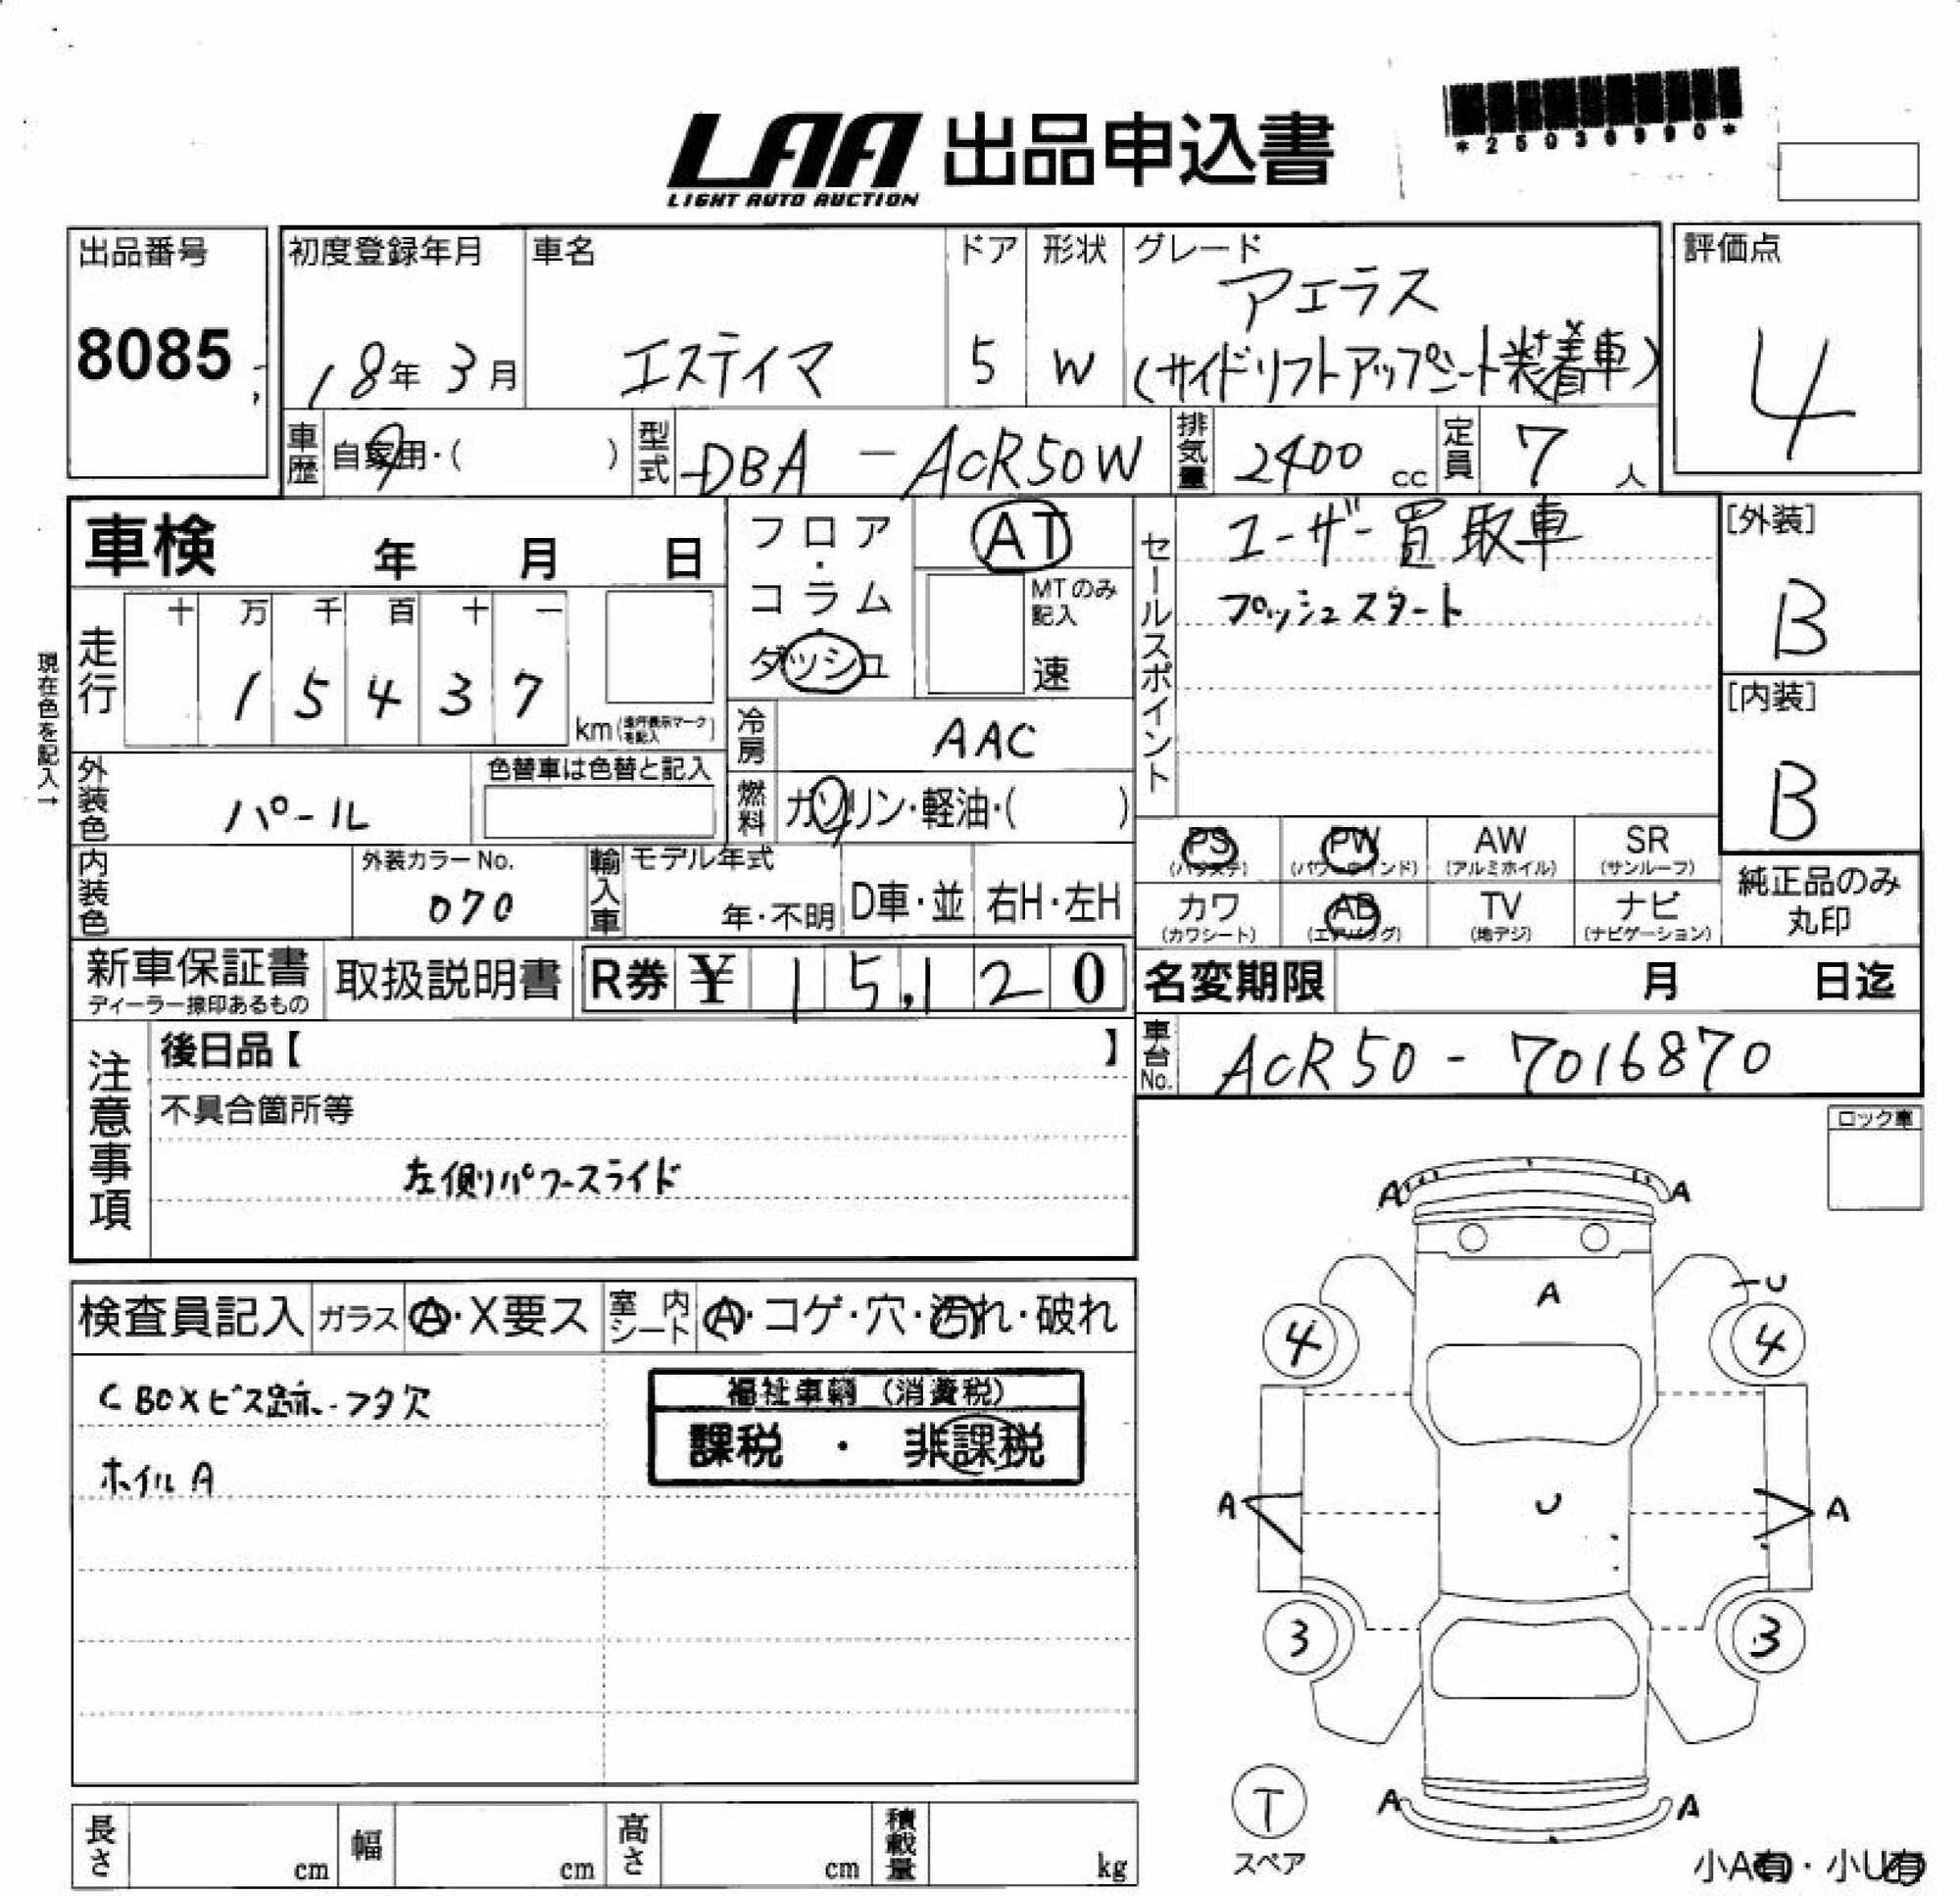 LAA 出品申込書
LIGHT AUTO AUCTION
*25030990*
出品番号 初度登録年月 車名 ドア 形状 グレード 評価点
8085 18年 3月 エスティマ 5 W アエラス
(サイドリフトアップシート装着車)
4
車歴 自家用・( ) 型式 DBA - ACR50W 排気量 2400 cc 定員 7 人
車検 年 月 日
フロア・コラム・ダッシュ AT
MTのみ記入 速
セールスポイント ユーザー買取車
プッシュスタート
[外装] B
[内装] B
現在色を記入→
走行 十 万 千 百 十 一
1 5 4 3 7 km(走行表示マークを記入)
冷房 AAC
外装色 パール 色替車は色替と記入
燃料 ガソリン・軽油・( )
内装色 外装カラーNo. 070
輸入車 モデル年式 年・不明 D車・並 右H・左H
PS (パワステ) PW (パワーウインド) AW (アルミホイル) SR (サンルーフ)
カワ (カワシート) AB (エアバッグ) TV (地デジ) ナビ (ナビゲーション)
純正品のみ丸印
新車保証書 ディーラー捺印あるもの 取扱説明書 R券 ¥ 15,120
名変期限 月 日迄
車台No. ACR50 - 7016870
注意事項 後日品【 】
不具合箇所等
左側パワースライド
ロック車
検査員記入 ガラス A・X要ス 室内シート A・コゲ・穴・汚れ・破れ
C BOXビス跡・フタ欠
ホイルA
福祉車輌 (消費税)
課税 ・ 非課税
A A
A U
4 4
A U A
3 3
T
スペア
A A
小A有・小U有
長さ cm 幅 cm 高さ cm 積載量 kg